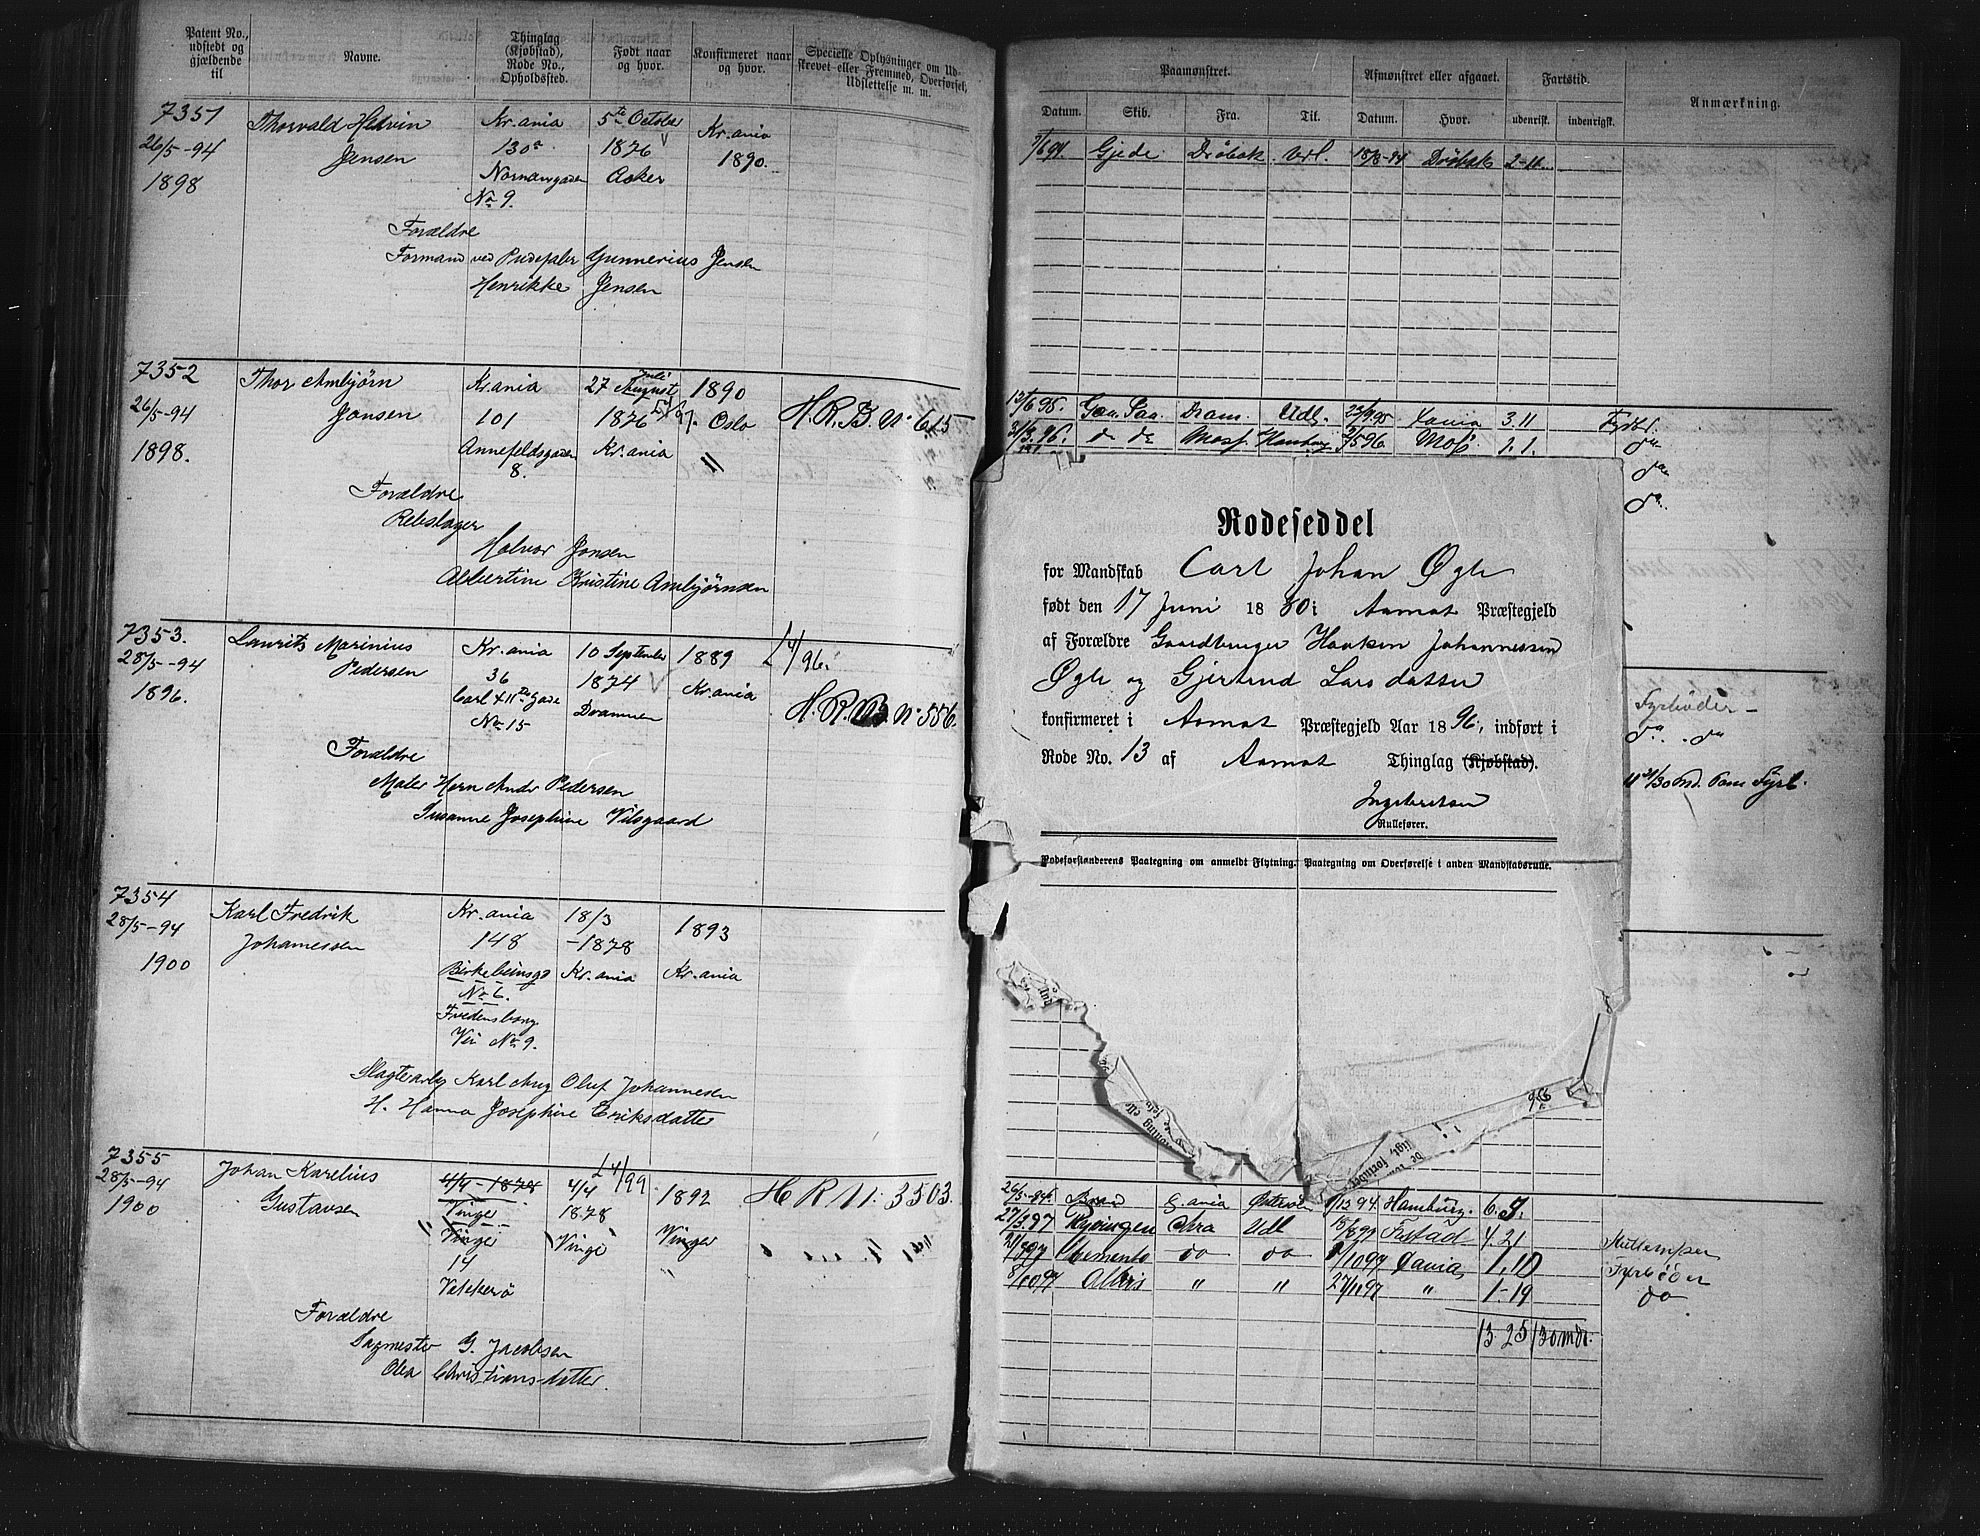 Patent No., udstedt og gjældende til
Navne.
Thinglag (Kjøbstad), Rode No., Opholdssted.
Født naar og hvor.
Konfirmeret naar og hvor.
Specielle Oplysninger om Udskrevet eller Fremmed, Overførsel, Udslettelse m. m.
7351
26/5-94
1898
Thorvald Hedvin
Jensen
Kr.ania
130a
No 9.
5te October
1876
Aker
Kr.ania
1890.
Forældre
Formand ved Gunnerius Jensen
Henrikke Jensen
7352
26/5-94
1898.
Thor Ambjørn
Jonsen
Kr.ania
101
Annefeldsgaden
8.
27 August
Juli
1876
Kr.ania
1890
Oslo
H.R.B. No 615
Forældre
Rebslager
Halvor Jonsen
Albertine Kristine Ambjørnsen
7353.
28/5-94
1896.
Laurits Marinius
Pedersen
Kr.ania
36
Carl XIIs Gade
No 15
10 September
1874
Drammen
1889
Kr.ania
L 4/96.
H.R. No 556.
Forældre
Maler Herm Andr Pedersen
Susanne Josephine Vilsgaard
7354
28/5-94
1900
Karl Fredrik
Johannessen
Kr.ania
148
Birkebeinsgd
No 6.
Fredensborg
Vei No 9.
18/3
-1878
Kr.ania
1893
Kr.ania
Slagterarb Karl Aug Oluf Johannesen
H. Hanna Josephine Eriksdatter
7355
28/5-94
1900
Johan Karelius
Gustavsen
4/4-1878
Vinger
Vinger
14
Vækkerø
L 4/99
4/4
1878
Vinger
1892
Vinger
H R N: 3503.
Forældre
Sagmester G. Jacobsen
Olea Christiansdatter.
Paamønstret.
Afmønstret eller afgaaet.
Fartstid.
Anmærkning.
Datum. Skib. Fra. Til. Datum. Hvor. udenrigsk. indenrigsk.
7/6 94. Gjede Drøbak Udl. 18/8-94 Drøbak 2-11
12/6 95. Dram. Udl. 22/9 95 Xania 3.11 Fyrb.
31/3.96. do do Moss. Hamburg 2/5 96 Moss. 1.1. do
do
do
Rodeseddel
for Mandskab Carl Johan Øgle
født den 17 Juni 1880 i Aamot Præstegjeld
af Forældre Gaardbruger Haaken Johannessen
Øgle og Gjertrud Larsdatter
konfirmeret i Aamot Præstegjeld Aar 1896, indført i
Rode No. 13 af Aamot Thinglag (Kjøbstad).
Ingebretsen
Rullefører.
Rodeforstanderens Paategning om anmeldt Flytning. Paategning om Overførelse i anden Mandskabsrulle.
Fyrbøder
do do
26/5-94. Brand Kr.ania Østersøen 1/12 94. Hamburg. 6.5.
27/3.97 Ryvingen Chra Udl 15/8 97 F.stad 4.21
Memento do do Xania 1.10 Fyrbøder
8/10 97 Albis " " 27/11 97 " 1-19 do
13 25 130 mdr.